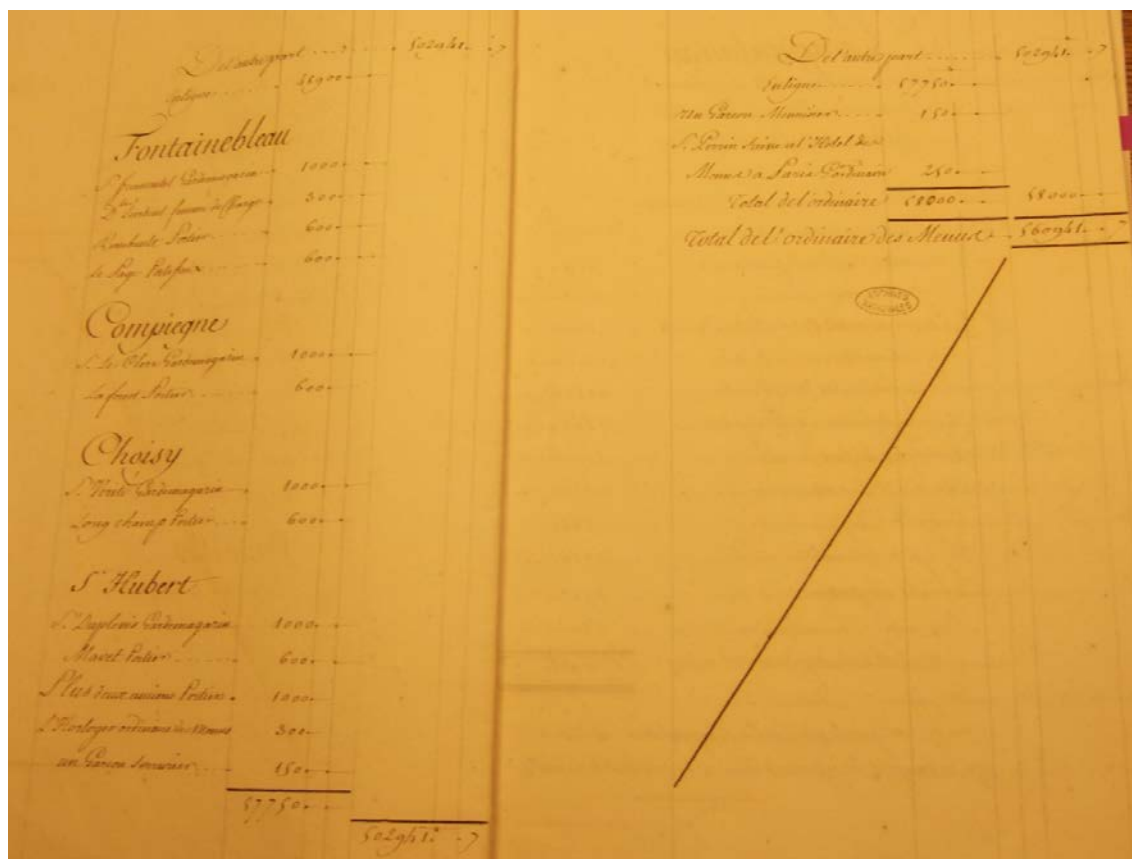 De l'autre part 502941. . 7
enligne
Fontainebleau
Gardemagazin 1000.
300.
Portier 600.
le Sage 600.
Compiegne
S. Le Clerc Gardemagazin 1000.
Laforest Portier 600.
Choisy
S. Gardemagazin 1000.
Longchamp Portier 600.
St Hubert
Sr. Duplessis Gardemagazin 1000.
Mavet Portier 600.
Plus deux anciens Portiers 1000.
L'Horloger ordinaire des Menus 300.
un Garçon Serrurier 150.
57750.
502941. . 7
De l'autre part 502941. . 7
Enligne 57750.
Un Garçon Menuisier 150.
S. Perrin Suisse a l'Hotel des
Menus a Paris 250.
Total de l'ordinaire 58000. 58000.
Total de l'ordinaire des Menus 560941. . 7